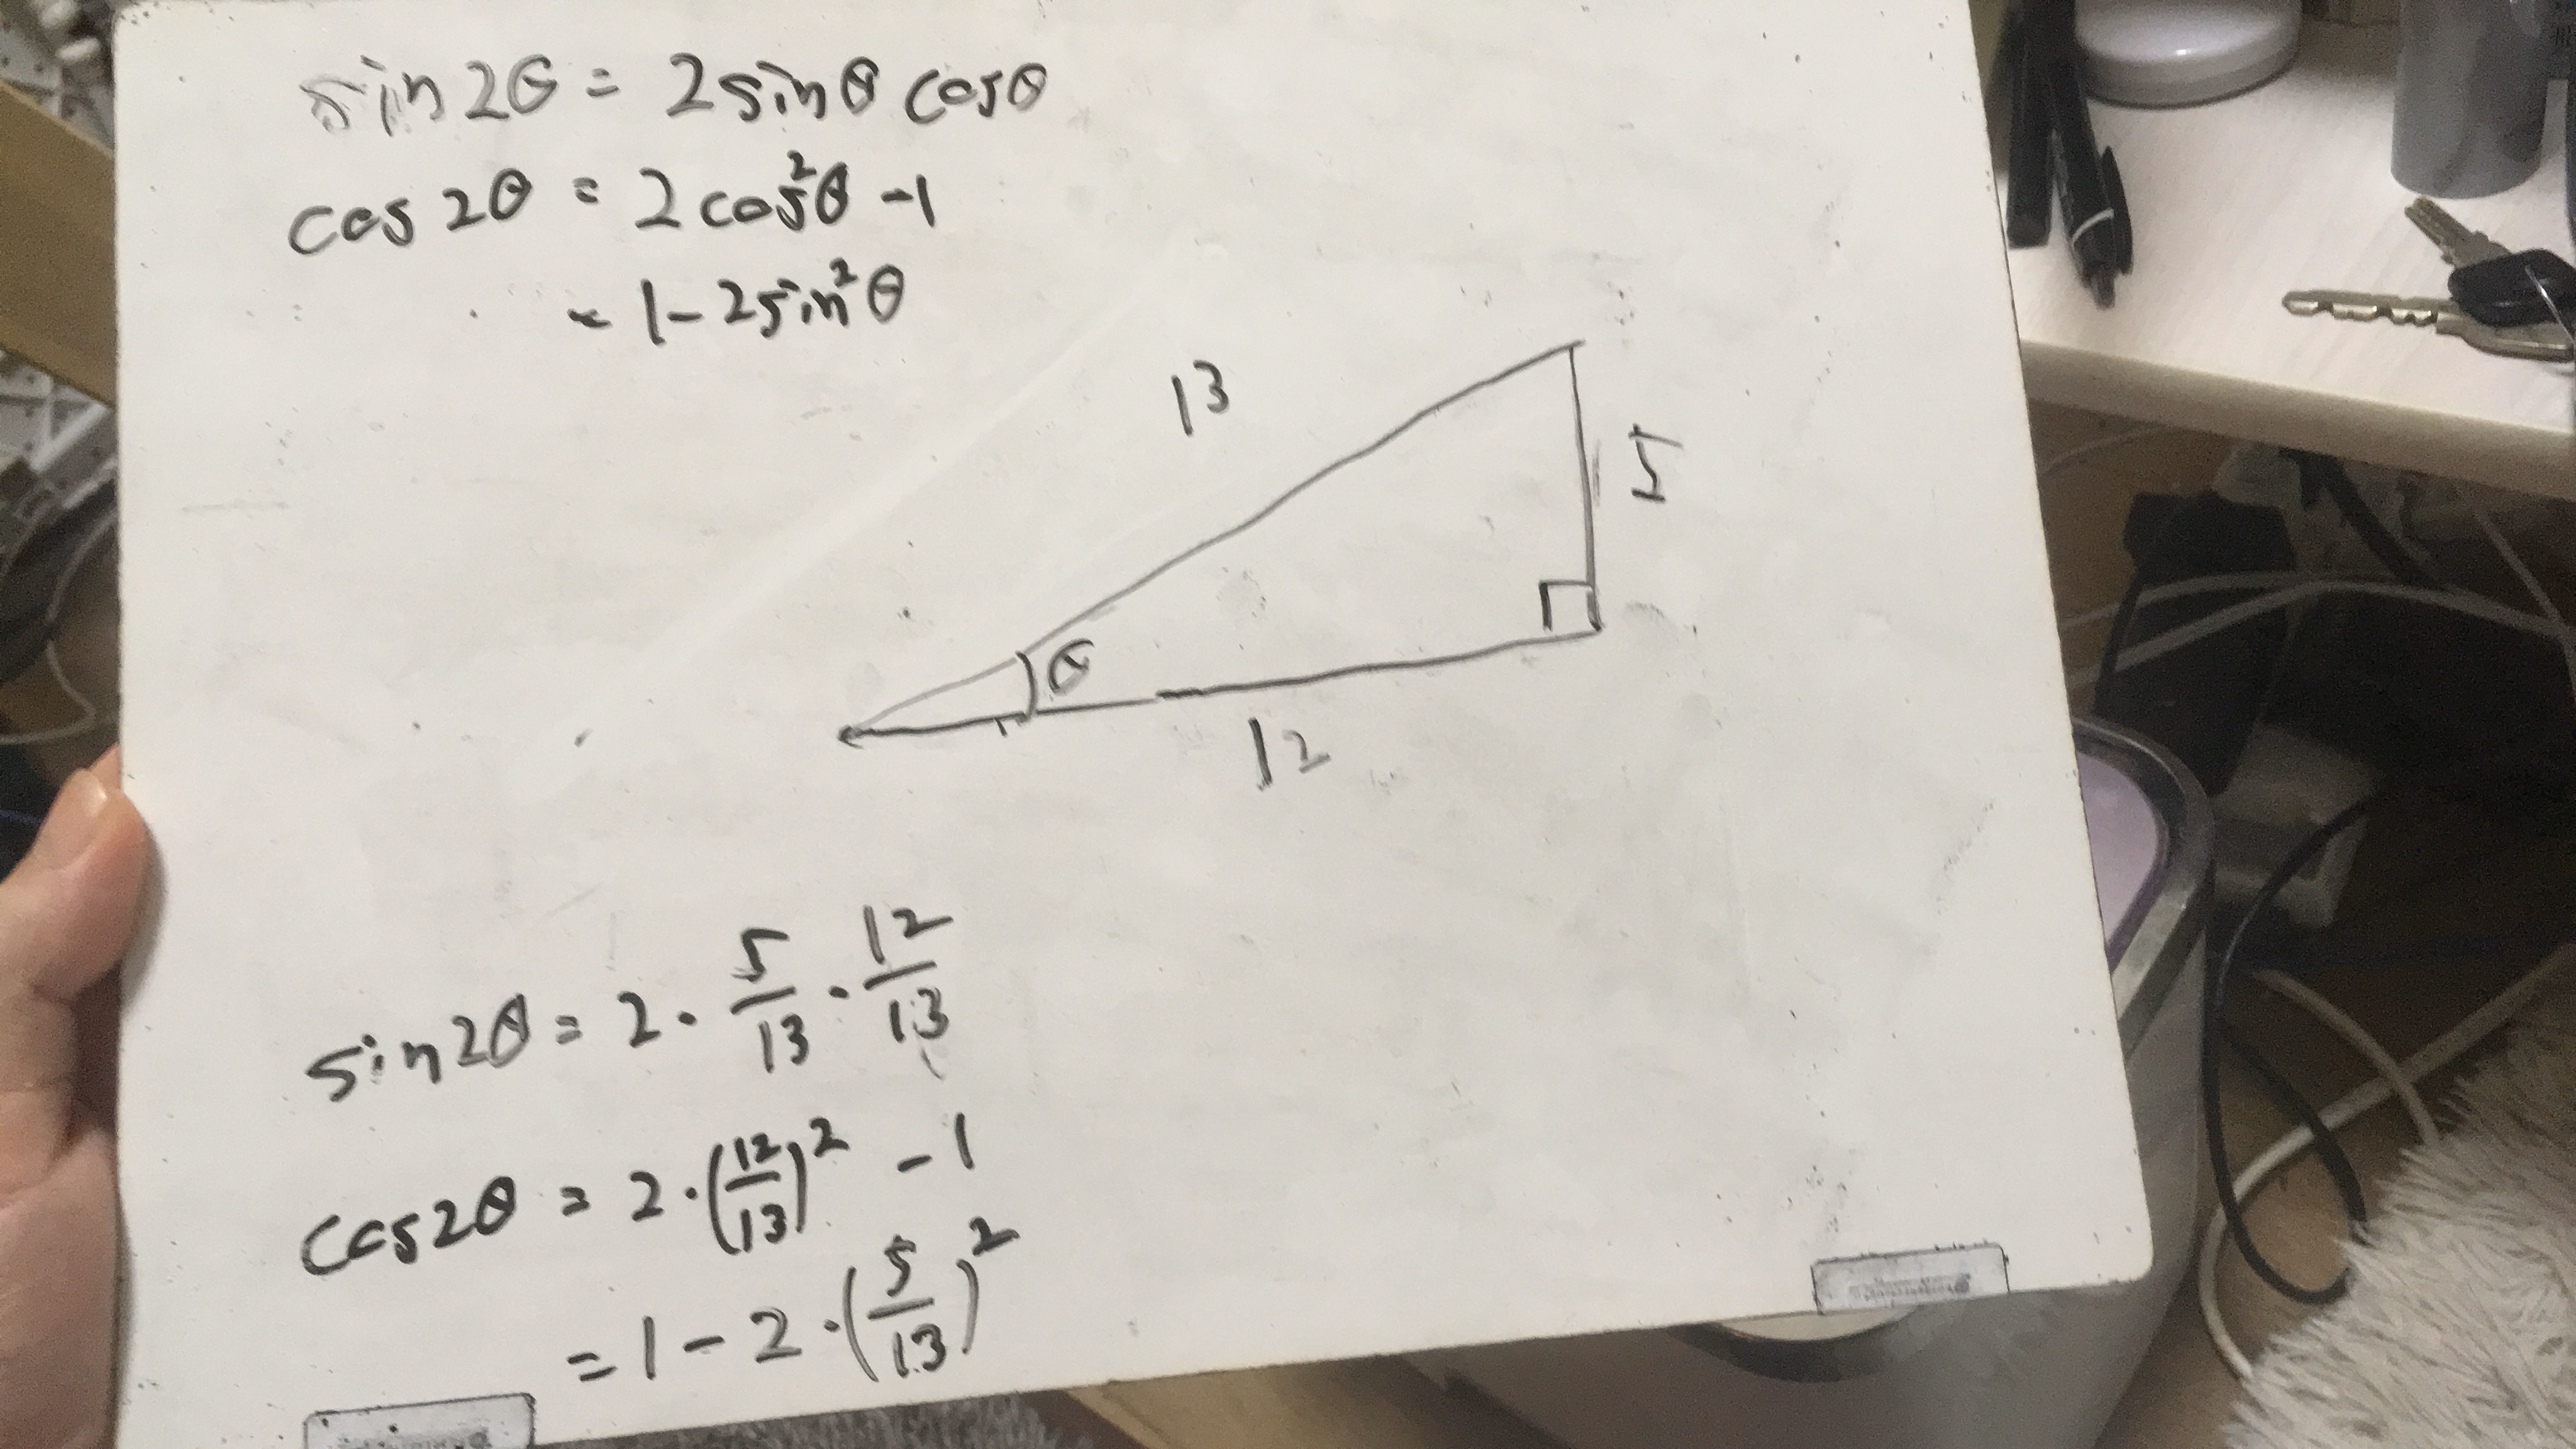 sin2θ = 2sinθ cosθ
cos2θ = 2cos²θ -1
= 1-2sin²θ
13
5
θ
12
sin2θ = 2 · 5/13 · 12/13
cos2θ = 2·(12/13)² -1
= 1-2·(5/13)²